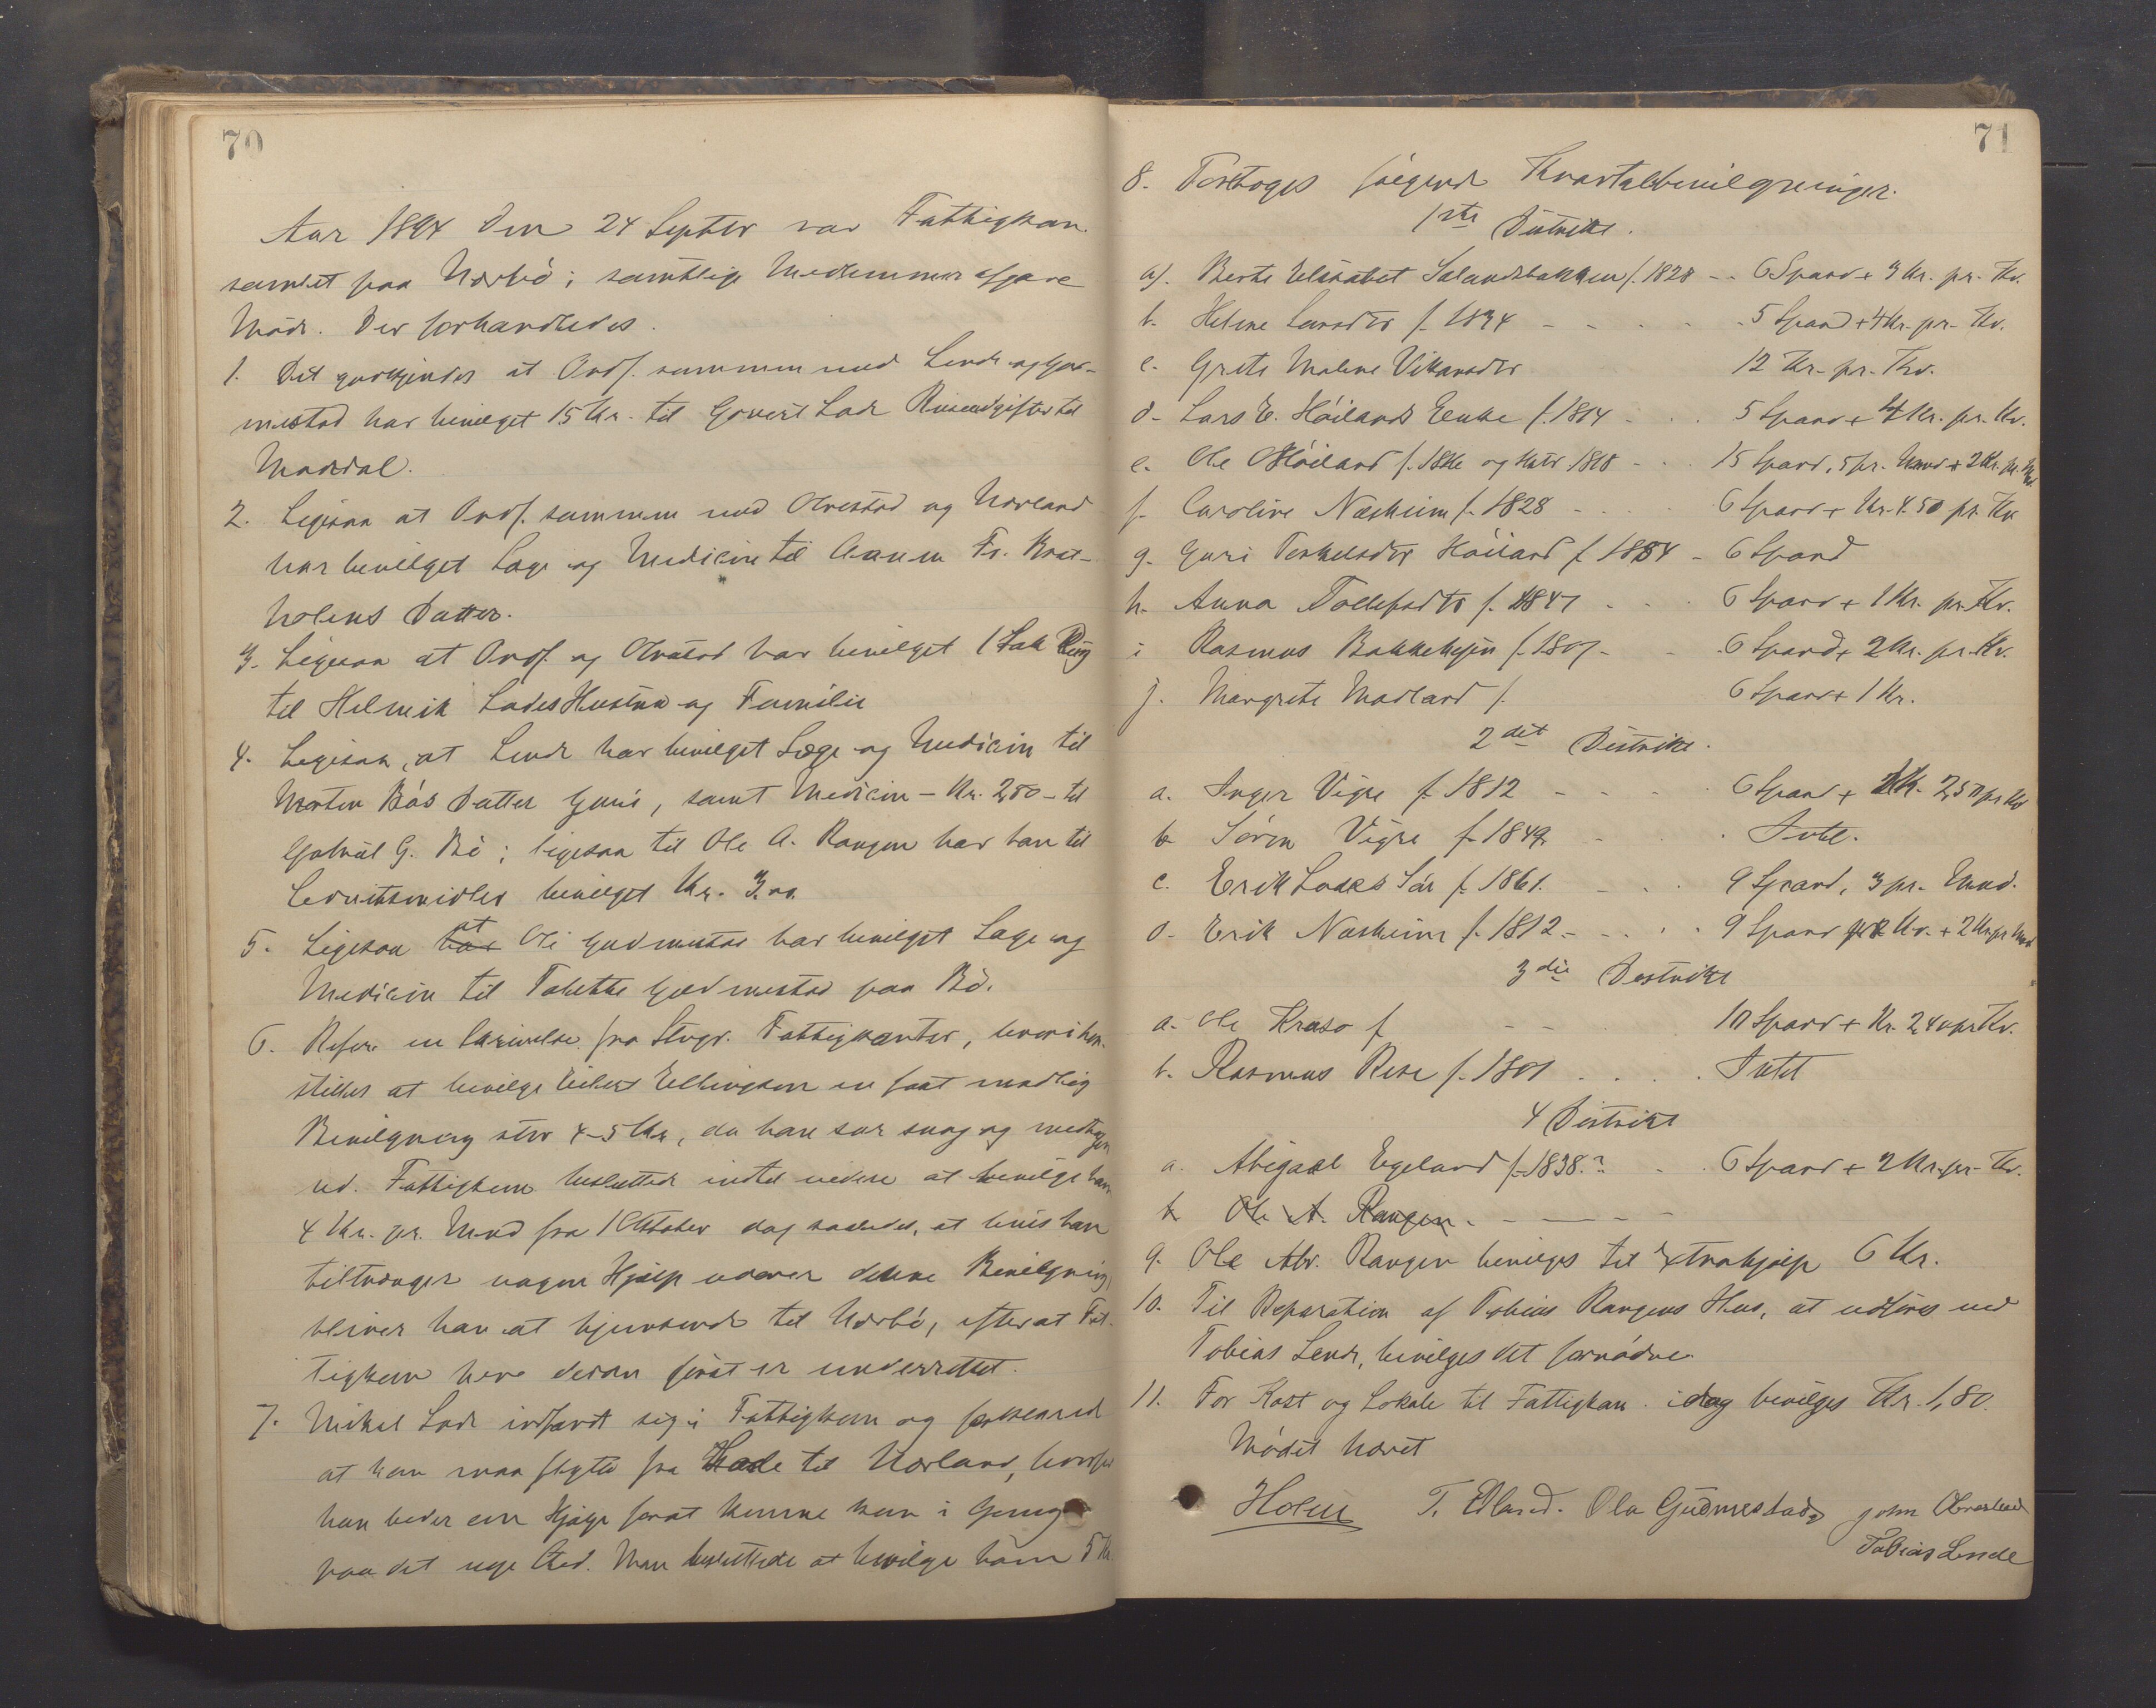 70
Aar 1894 den 24 Septbr var Fattigkom.
samlet paa Nærbö; samtlige Medlemmer afgave
Möde. Der forhandledes.
1. Det godkjendes at Ordf. sammen med Lende og Gud-
mestad har bevilget 15 Kr. til Govert Lode Reiseudgifter til
Maddal.
2. Ligesaa at Ordf. sammen med Obrestad og Nærland
har bevilget Læge og Medicin til Fr. Bræk-
holens Datter.
3. Ligesaa at Ordf. og Obrestad har bevilget 1 Sæk Rug
til Helmik Lodes Hustru og Familie
4. Ligesaa, at Lende har bevilget Læge og Medicin til
Morten Bös Datter Guri, samt Medicin – Kr. 2,50 – til
G. Bö; ligesaa til Ole A. Rangen har han til
Levnetsmidler bevilget Kr. 3,00.
5. Ligesaa har at Ole Gudmestad har bevilget Læge og
Medicin til Tolette Gudmestad paa Bö.
6. Refer. en Skrivelse fra Stvgr. Fattigkontor, hvori hen-
stilles at bevilge Eilert Ellingsen en fast maanedlig
Bevilgning stor 4–5 Kr., da han er svag og medtagen
ud. Fattigkom. besluttede indtil videre at bevilge ham
4 Kr. pr. Mnd fra 1 Oktober dog saaledes, at hvis han
tiltrænger nogen Hjælp udover denne Bevilgning,
bliver han at hjemsende til Nærbö, efterat Fat-
tigkom. her derom först er underrettet.
7. Mikal Lode indfandt sig i Fattigkom og forklarede
at han maa flytte fra Hade til Nærland, hvorfor
han beder om Hjælp forat kunne komme i Gang
paa det nye Sted. Man besluttede at bevilge ham 5 Kr.
71
8. Foretoges fölgende Kvartalbevilgninger.
1ste Distrikt.
a). Berte Elisabet Salandsbakken f. 1828 -- 6 Spand + 3 Kr. pr. Kv.
b. Helene Larsdtr f. 1834 - - - - 5 Spand + 4 Kr. pr. Kv.
c. Grete Malene Vikarsdtr 12 Kr. pr. Kv.
d. Lars E. Höilands Enke f. 1814 - - 5 Spand + 4 Kr. pr. Kv.
e. Ole Höiland f. og Kone 1818 - - 15 Spand, 5 pr. Mnd + 2 Kr. pr. Mnd.
f. Caroline Næsheim f. 1828 - - - - 6 Spand + Kr. 4.50 pr. Kv
g. Guri Torkelsdtr Höiland f. 1834 - 6 Spand
h. Anna Tollefsdtr f. 1847 - - - 6 Spand + 1 Kr. pr. Kv.
i Rasmus Bakkehejen f. 1807 - - 6 Spand + 2 Kr. pr. Kv.
j. Margrete Madland f. 6 Spand + 1 Kr.
2det Distrikt.
a. Inger Vigre f. 1812 - - - - 6 Spand + Kr. 2,50 pr Kv
b Sören Vigre f. 1849 - - Intet.
c. Erik Lodes Sön f. 1861. - - - 9 Spand, 3 pr. Mnd.
d. Erik Næsheim f. 1812 - - - 9 Spand pr Kv. + 2 Kr pr Mnd
3die Distrikt
a. Ole Kraso f -- 10 Spand + Kr. 2.40 pr Kv.
b. Rasmus Rese f. 1801 . . . . Intet
4 Distrikt
a. Abigael Egeland f. 1838.? . . 6 Spand + 2 Kr. pr. Kv.
b Ole A. Rangen. - - - -
9. Ole Abr. Rangen bevilges til Extrahjælp 6 Kr.
10. Til Reparation af Tobias Rangens Hus, at udföres ved
Tobias Lende, bevilges det fornödne.
11. For Kost og Lokale til Fattigkom. idag bevilges Kr. 1,80.
Mödet hævet
Holm T. Edland. Ola Gudmestad, John Obrestad
Tobias Lende